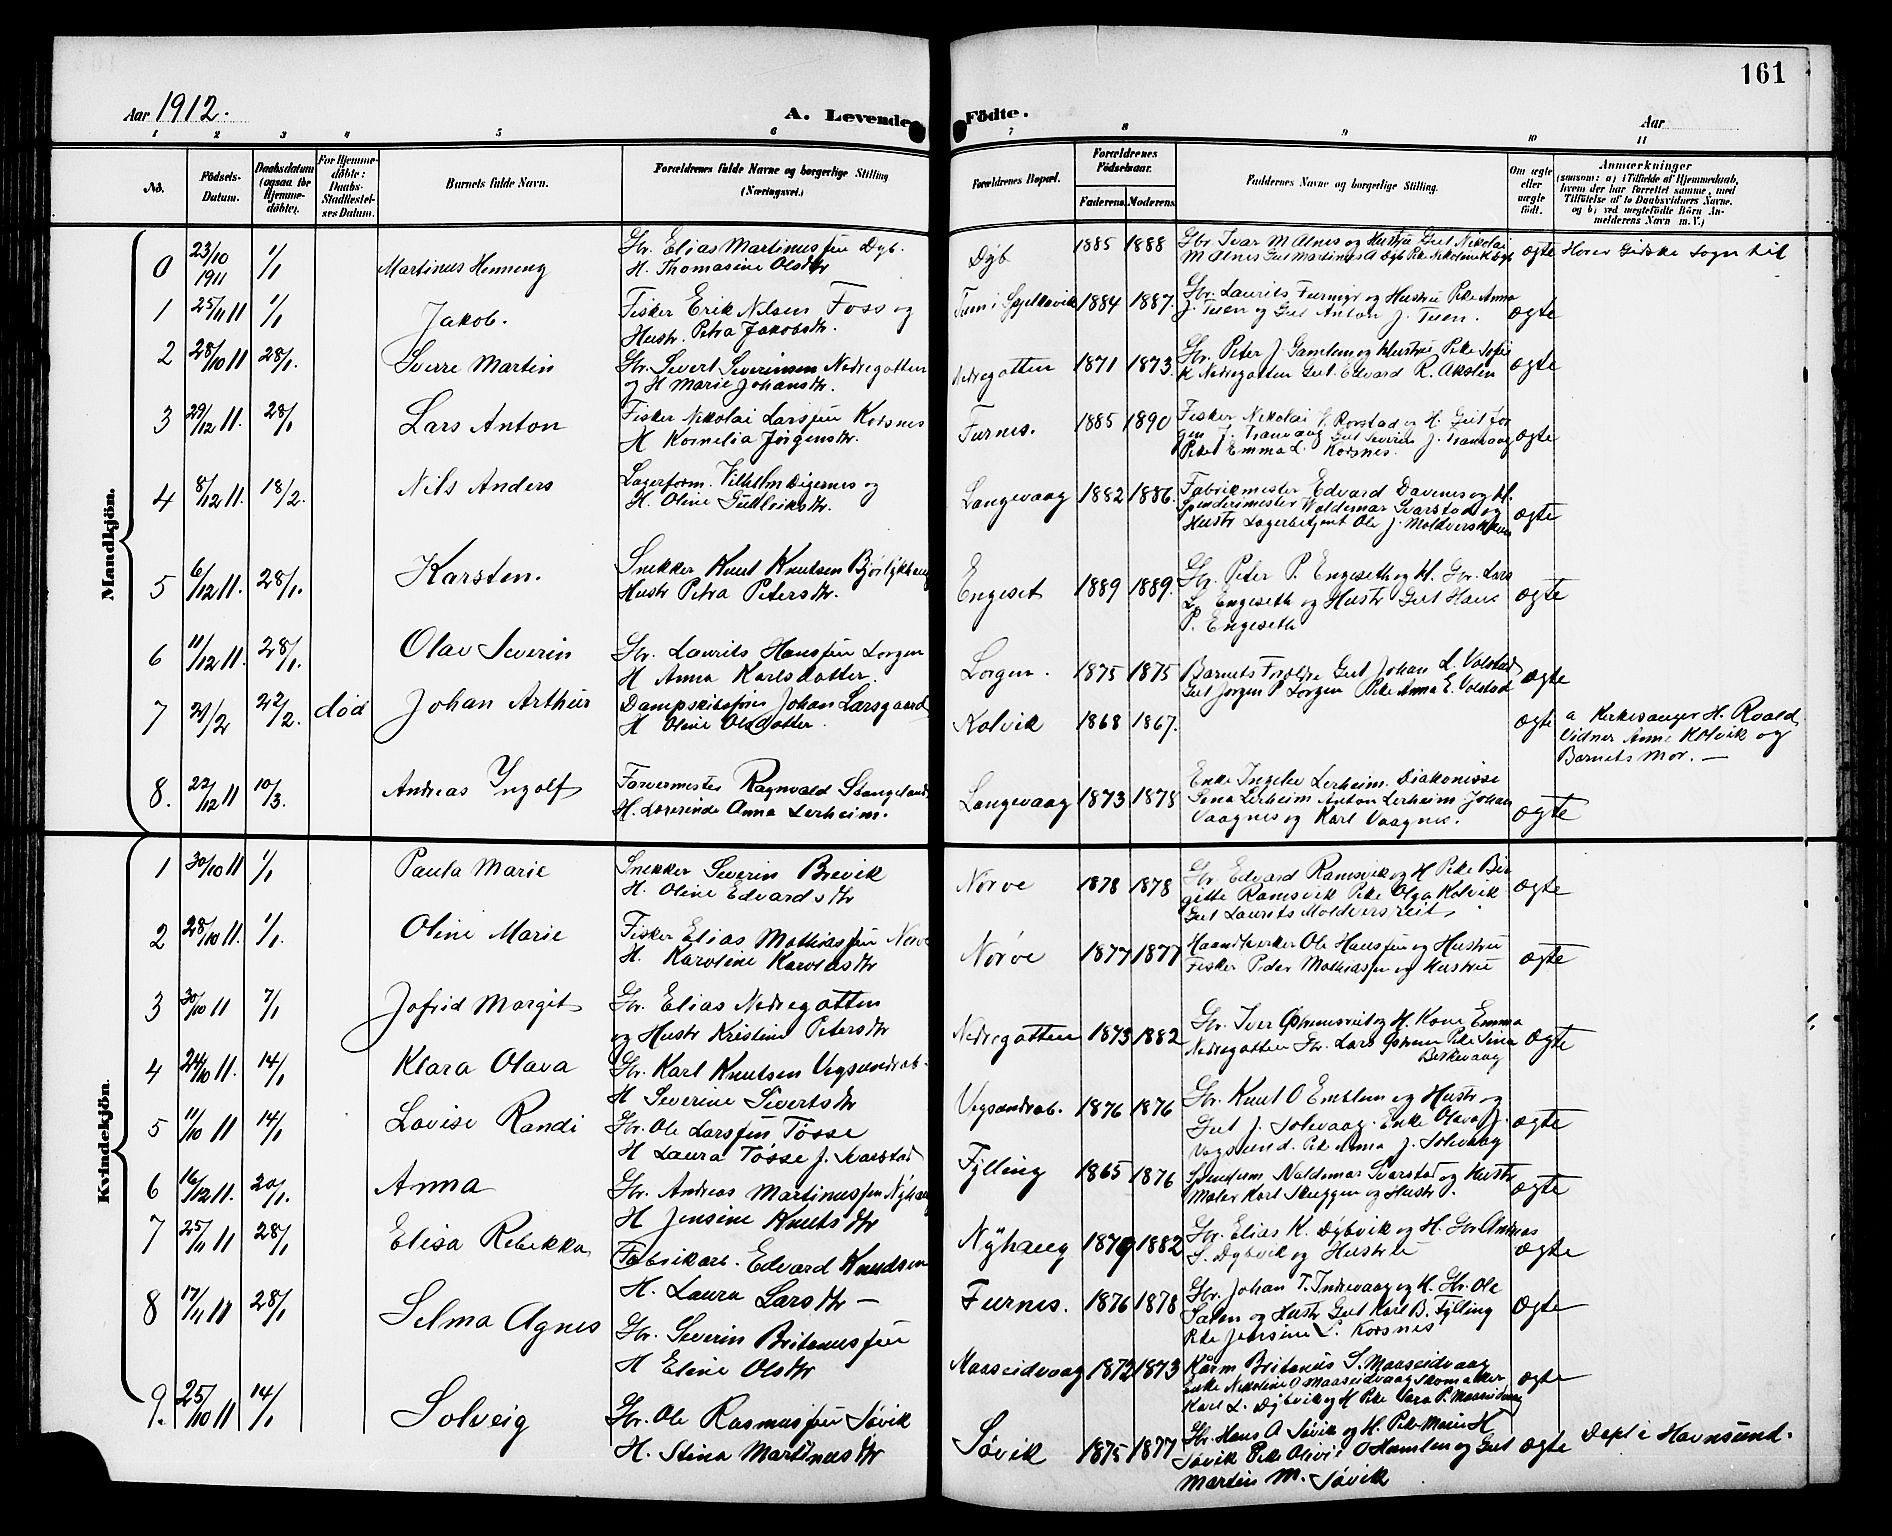 161
Aar 1912.
A. Levende Födte.
Aar
1 2 3 4 5 6 7 8 9 10 11
No.
Födsels-Datum.
Daabsdatum (ogsaa for Hjemmedöbte).
For Hjemmedöbte: Daabs-Stadfæstelses Datum.
Barnets fulde Navn.
Forældrenes fulde Navne og borgerlige Stilling (Næringsvei.)
Forældrenes Bopæl.
Forældrenes Födselsaar.
Faderens. Moderens.
Faddernes Navne og borgerlige Stilling.
Om ægte eller uægte født.
Anmærkninger (saasom: a) i Tilfælde af Hjemmedaab, hvem der har forrettet samme, med Tilföielse af to Daabsvidners Navne. og b) ved uægtefödte Börn Anmelderens Navn m. V.)
Mandkjön.
0 23/10 1911 1/1 Martinus Henneng
Gbr. Elias Martinussen Dyb.
H. Thomasine Olsdtr
Dyb 1885 1888
Gbr. Ivar M Alnes og Hustru Gut Nikolai
M Alnes Gut Martinus A Dyb Pike Nikoline K Dyb
ægte Hører Giske Sogn til
1 25/11 11 1/1 Jakob.
Fisker Erik Nilsen Foss og
Hustr. Petra Jakobsdtr.
Tuen i Spjelkavik 1884 1887.
Gbr. Laurits Furmyr og Hustru Pike Anna
J. Tuen og Gut Anton J. Tuen.
ægte
2 28/10 11 28/1. Sverre Martin
Gbr. Sivert Severinsen Nedregotten
og H Marie Johansdtr.
Nedregotten 1871 1873.
Gbr. Peter J. Gamlem og Hustru Pike Sofie
K Nedregotten Gut. Edvard R. Akslen
ægte
3 29/12 11. 28/1 Lars Anton
Fisker Nikolai Larssen Korsnes
H Kornelia Jørgensdtr.
Furnes. 1885 1890
Fisker Nikolai Rorstad og H. Gut Jør
gen J. Tranvaag Gut Severin J. Tranvaag
Pike Emma L. Korsnes.
ægte
4 8/12 11. 18/2. Nils Anders
Lagerform. Vilhelm Digernes og
H. Oline Gudleiksdtr.
Langevaag 1882 1886.
Fabrikmester Edvard Davenes og H.
Spinderimester Waldemar Svarstad og
Hustr Lagerbetjent Ole J. Moldversh
ægte
5 6/12 11. 28/1. Karsten.
Snekker Knut Knutsen Bjørlykhaug
Hustr Petra Petersdtr.
Engeset 1889 1889.
Gbr. Peter P. Engeseth og H. Gbr. Lars
L. Engeseth og Hustr Gut Hans
P. Engeseth
ægte
6 11/12 11. 28/1. Olav Severin
Gbr. Laurits Hanssen Lorgen
H Anna Karlsdatter.
Lorgen. 1875 1875
Barnets Foræltre Gut Johan L. Volstad
Gut Jørgen P Lorgen Pike Anna E. Volstad
ægte
7 21/2 22/2. død Johan Arthur
Dampskibsfører Johan Larsgaard
H Oline Olsdatter.
Kolvik 1868 1867.
ægte a Kirkesanger H. Roald
Vidner Anne Kolvik og
Barnets Mor. —
8. 22/12 11 10/3. Andreas Ingolf
Farvermester Ragnvald Stangeland
H. Lærerinde Anna Lerheim.
Langevaag 1873 1878
Enke Ingelev Lerheim. Diakonisse
Sena Lerheim Anton Lerheim Johan
Vaagnes og Karl Vaagnes.
ægte
Kvindekjön.
1 30/10 11 1/1 Paula Marie
Snekker Severin Brevik
H. Oline Edvardsdtr
Nørve 1878 1878
Gbr Edvard Ramsvik og H Pike Bir
gitte Ramsvik Pike Olga Kolvik
Gut Laurits Moldversreit
ægte
2 28/10 11. 1/1. Oline Marie
Fisker Elias Mathiassen Nørve
H. Karoline Karolusdtr
Nørve 1877 1877
Haandtverker Ole Hanssen og Hustru
Fisker Peder Mathiassen og Hustru
ægte
3 30/10 11 7/1 Jofrid Margit
Gbr. Elias Nedregotten
og Hustr Kristine Petersdtr
Nedregotten 1873 1882
Gbr. Iver og H. Kone Emma
Nedregotten Gbr. Lars Pike Sina
Birkevaag
ægte
4 24/10 11. 14/1 Klara Olava
Gbr. Karl Knutsen Vegsundrab.
H Severine Sivertsdtr
Vegsundrab. 1876 1876
Gbr. Knut O Emblem og Hustr og
Gut J. Solevaag. Enke Olava J.
Vegsund. Pike Anna J. Solevaag
ægte
5 11/10 11 14/1 Lovise Randi
Gbr. Ole Larssen Tøsse
H Laura Tøsse f. Svarstad
Fylling 1865 1876
Spinderim Valdemar Svarstad og Hustr
Maler Karl Skuggen og Hustr.
ægte
6 16/12 11. 20/1. Anna
Gbr. Andreas Martinussen Nyhaug
H Jensine Knutsdtr
Nyhaug 1879 1882
Gbr. Elias K. Dybvik og H. Gbr. Andreas
S. Dybvik og Hustru
ægte
7 25/11 11 28/1 Elisa Rebekka
Fabrikarb. Edvard Knudsen
H. Laura Larsdtr —
Furnes. 1876 1878
Gbr. Johan T. Indrevaag og H. Gbr. Ole
Salen og Hustr Gut Karl B. Fylling
Pike Jensine L. Korsnes
ægte
8 17/11 11 28/1 Selma Agnes
Gbr. Severin Britanussen
H Eline Olsdtr
Maaseidvaag 1872 1873
Kårm Britanus S. Maaseidvaag
Enke Nikoline O Maaseidvaag Skomaker
Karl L. Dybvik og H Pike Sara P. Maaseidvaag
ægte
9. 25/10 11 14/1 Solveig
Gbr. Ole Rasmussen Søvik
H. Stina Martinusdtr
Søvik 1875 1877
Gbr. Hans A Søvik og H. Pike Marie H
Søvik Pike Olivie O Hamlen og Gut
Martin M. Søvik
ægte Døpt i Havnsund.